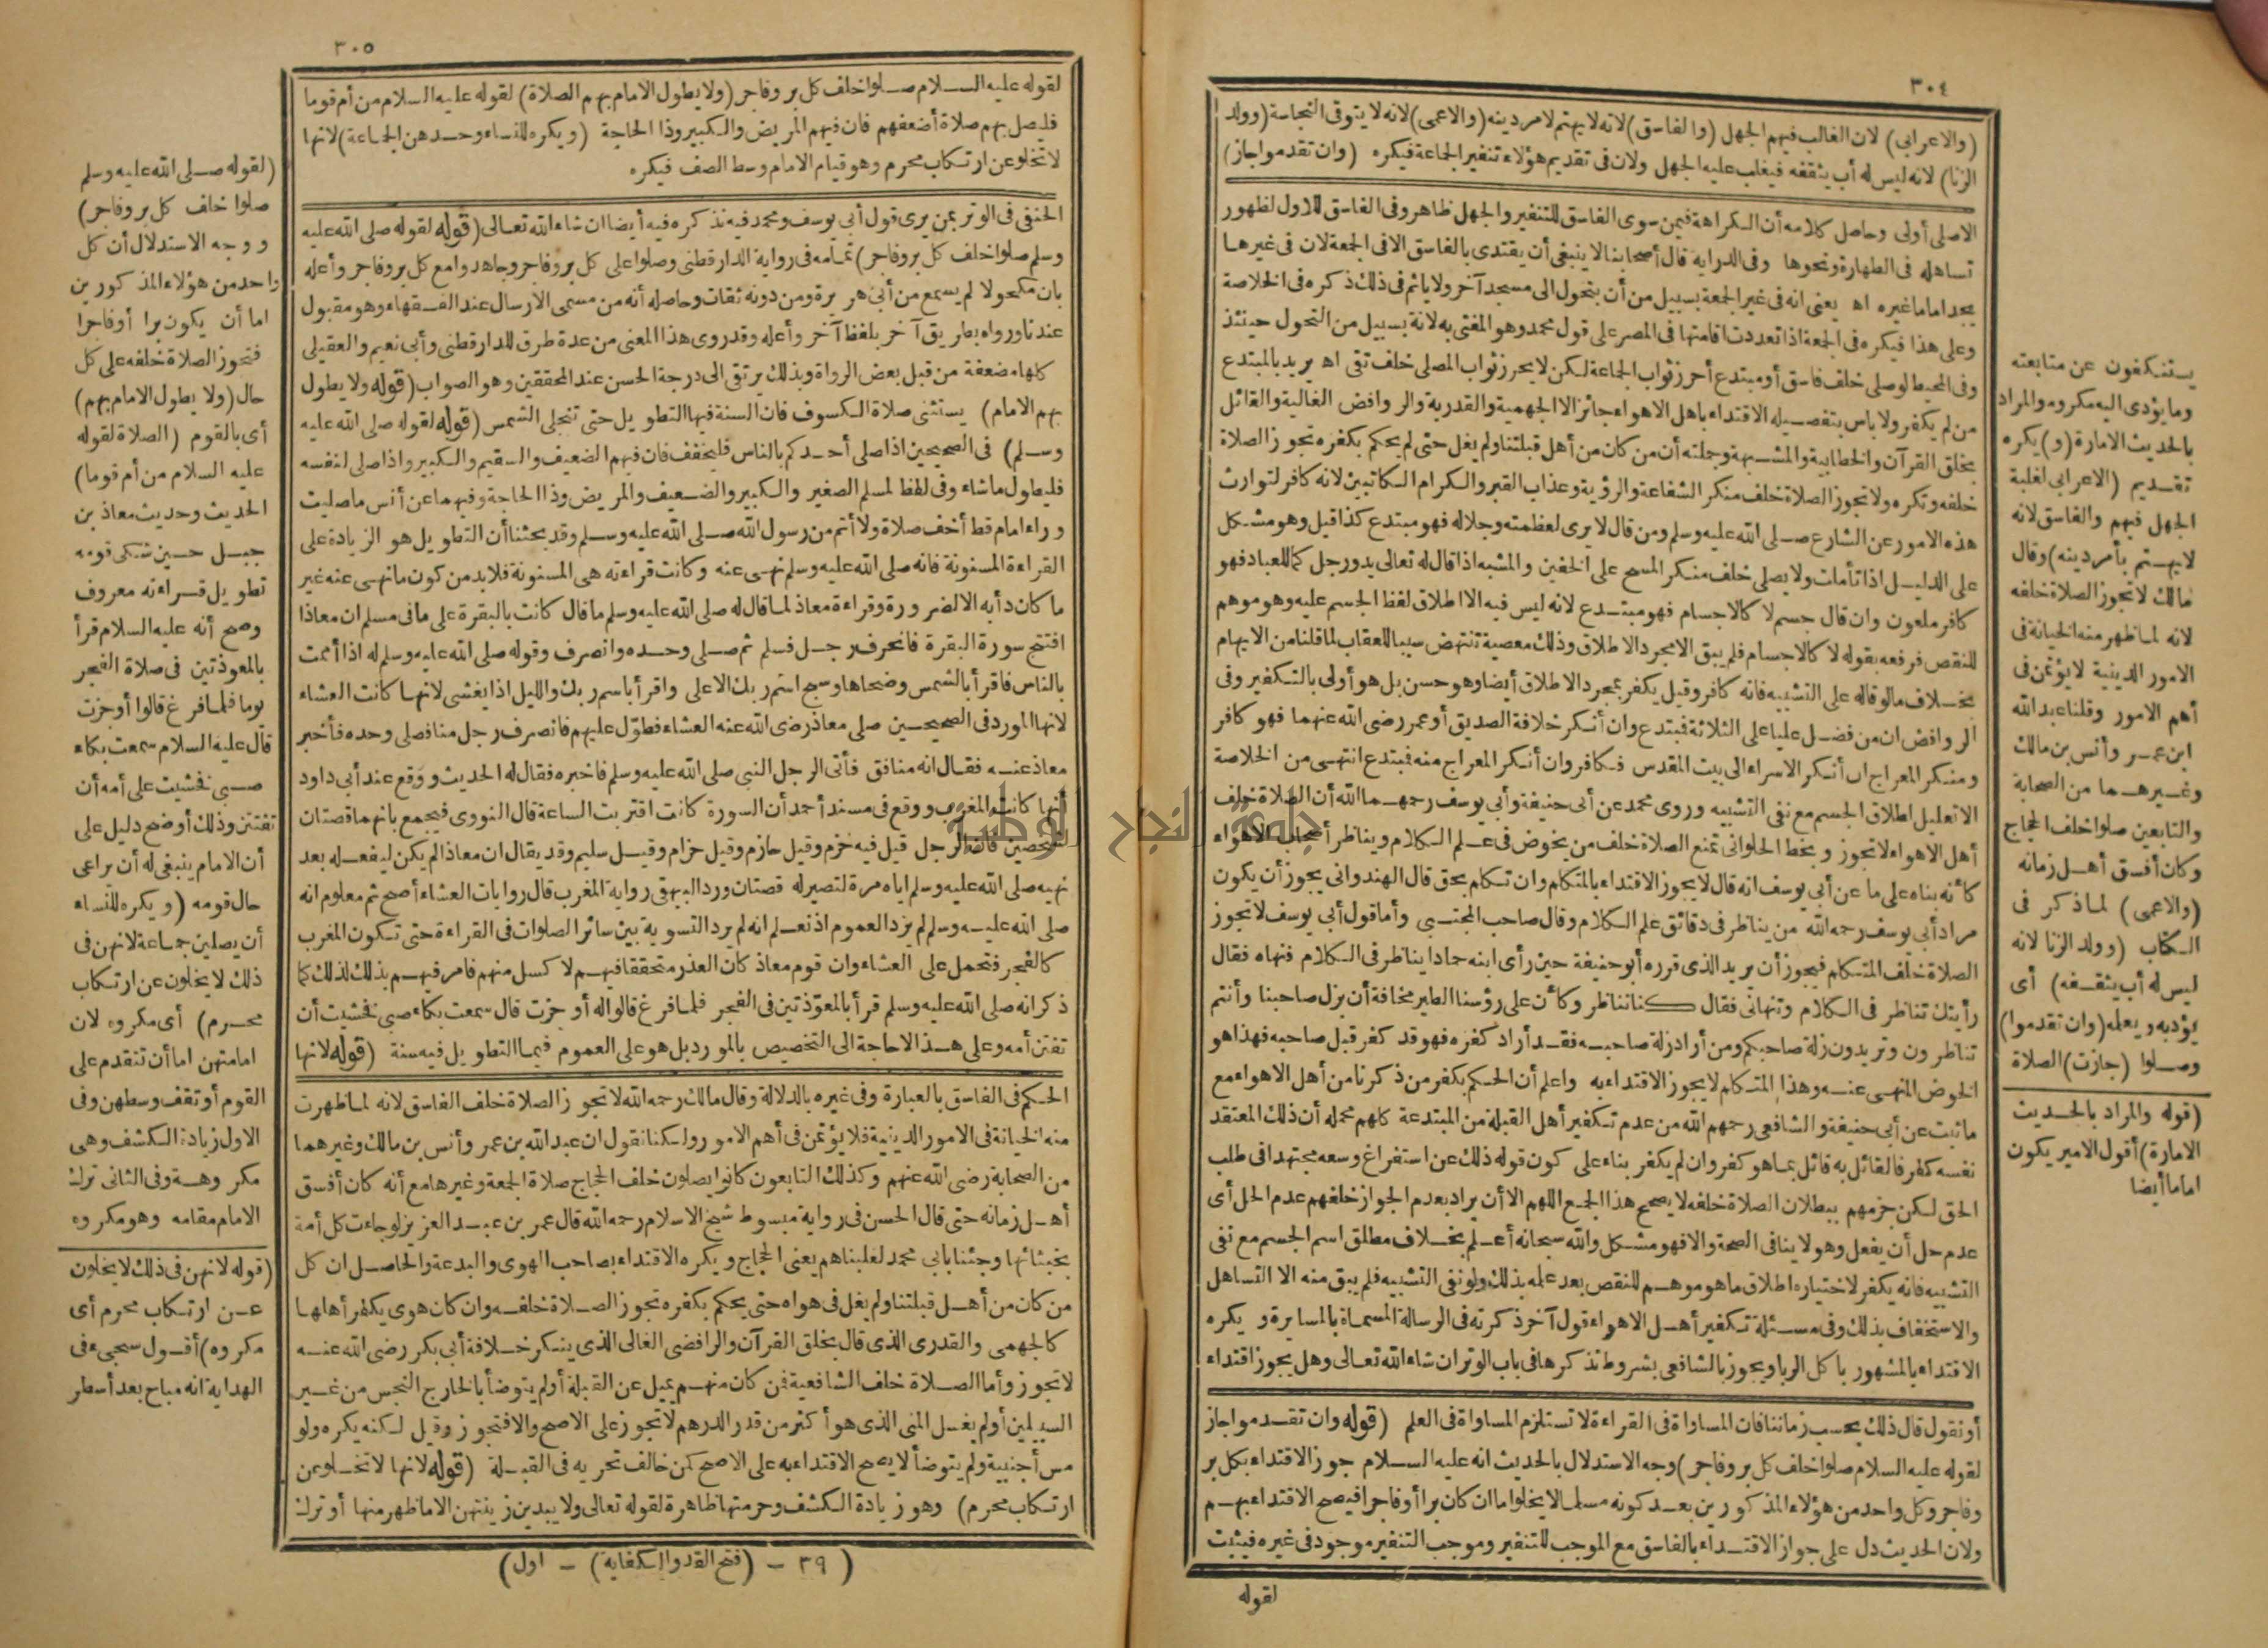 ٣٠٤
(والاعرابي) لان الغالب فيهم الجهل (والفاسق) لانه لا يهتم لامر دينه (والاعمى) لانه لا يتوقى النجاسة (وولد
الزنا) لانه ليس له أب يثقفه فيغلب عليه الجهل ولان فى تقديم هؤلاء تنفير الجماعة فيكره (وان تقدموا جاز)
الاصلى أولى وحاصل كلامه أن الكراهة فيمن سوى الفاسق للتنفير والجهل ظاهر وفى الفاسق للاول لظهور
تساهله فى الطهارة ونحوها وفى الدراية قال أصحابنا لا ينبغى أن يقتدى بالفاسق الا فى الجمعة لان فى غيرها
يجد اماما غيره اه يعنى انه فى غير الجمعة بسبيل من أن يتحول الى مسجد آخر ولا يأثم فى ذلك ذكره فى الخلاصة
وعلى هذا فيكره فى الجمعة اذا تعددت اقامتها فى المصر على قول محمد وهو المفتى به لانه بسبيل من التحول حينئذ
وفى المحيط لو صلى خلف فاسق أو مبتدع أحرز ثواب الجماعة لكن لا يحرز ثواب المصلى خلف تقى اه يريد بالمبتدع
من لم يكفر ولا بأس بتفصيله الاقتداء باهل الاهواء جائز الا الجهمية والقدرية والروافض الغالية والقائل
بخلق القرآن والخطابية والمشبهة وجملته أن من كان من أهل قبلتنا ولم يغل حتى لم يحكم بكفره تجوز الصلاة
خلفه وتكره ولا تجوز الصلاة خلف منكر الشفاعة والرؤية وعذاب القبر والكرام الكاتبين لانه كافر لتوارث
هذه الامور عن الشارع صلى الله عليه وسلم ومن قال لا يرى لعظمته وجلاله فهو مبتدع كذا قيل وهو مشكل
على الدليل اذا تأملت ولا يصلى خلف منكر المسح على الخفين والمشبه اذا قال له تعالى يد ورجل كما للعباد فهو
كافر ملعون وان قال جسم لا كالاجسام فهو مبتدع لانه ليس فيه الا اطلاق لفظ الجسم عليه وهو موهم
للنقص فرفعه بقوله لا كالاجسام فلم يبق الا مجرد الاطلاق وذلك معصية تنتهض سببا للعقاب لما قلنا من الايهام
بخلاف ما لو قاله على التشبيه فانه كافر وقيل يكفر بمجرد الاطلاق أيضا وهو حسن بل هو أولى بالتكفير وفى
الروافض ان من فضل عليا على الثلاثة فمبتدع وان أنكر خلافة الصديق أو عمر رضى الله عنهما فهو كافر
ومنكر المعراج ان أنكر الاسراء الى بيت المقدس فكافر وان أنكر المعراج منه فمبتدع انتهى من الخلاصة
الا تعليل اطلاق الجسم مع نفى التشبيه وروى محمد عن أبى حنيفة وأبى يوسف رحمهما الله أن الصلاة خلف
أهل الاهواء لا تجوز وبخط الحلوانى تمنع الصلاة خلف من يخوض فى علم الكلام ويناظر أصحاب الاهواء
كأنه بناه على ما عن أبى يوسف انه قال لا يجوز الاقتداء بالمتكلم وان تكلم بحق قال الهندوانى يجوز أن يكون
مراد أبى يوسف رحمه الله من يناظر فى دقائق علم الكلام وقال صاحب المجتبى وأما قول أبى يوسف لا تجوز
الصلاة خلف المتكلم فيجوز أن يريد الذى قرره أبو حنيفة حين رأى ابنه حمادا يناظر فى الكلام فنهاه فقال
رأيتك تناظر فى الكلام وتنهانى فقال كنا نناظر وكأن على رؤسنا الطير مخافة أن يزل صاحبنا وأنتم
تناظرون وتريدون زلة صاحبكم ومن أراد زلة صاحبه فقد أراد كفره فهو قد كفر قبل صاحبه فهذا هو
الخوض المنهى عنه وهذا المتكلم لا يجوز الاقتداء به واعلم أن الحكم بكفر من ذكرنا من أهل الاهواء مع
ما ثبت عن أبى حنيفة والشافعى رحمهم الله من عدم تكفير أهل القبلة من المبتدعة كلهم محمله أن ذلك المعتقد
نفسه كفر فالقائل به قائل بما هو كفر وان لم يكفر بناء على كون قوله ذلك عن استفراغ وسعه مجتهدا فى طلب
الحق لكن جزمهم ببطلان الصلاة خلفه لا يصحح هذا الجمع اللهم الا أن يراد بعدم الجواز خلفهم عدم الحل أى
عدم حل أن يفعل وهو لا ينافى الصحة والا فهو مشكل والله سبحانه أعلم بخلاف مطلق اسم الجسم مع نفى
التشبيه فانه يكفر لاختياره اطلاق ما هو موهم للنقص بعد علمه بذلك ولو نفى التشبيه فلم يبق منه الا التساهل
والاستخفاف بذلك وفى مسئلة تكفير أهل الاهواء قول آخر ذكرته فى الرسالة المسماة بالمسايرة ويكره
الاقتداء بالمشهور باكل الربا ويجوز بالشافعى بشروط نذكرها فى باب الوتر ان شاء الله تعالى وهل يجوز اقتداء
أو نقول قال ذلك بحسب زماننا فان المساواة فى القراءة لا تستلزم المساواة فى العلم (قوله وان تقدموا جاز
لقوله عليه السلام صلوا خلف كل بر وفاجر) وجه الاستدلال بالحديث انه عليه السلام جوز الاقتداء بكل بر
وفاجر وكل واحد من هؤلاء المذكورين بعد كونه مسلما لا يخلو اما ان كان برا أو فاجرا فيصح الاقتداء بهم
ولان الحديث دل على جواز الاقتداء بالفاسق مع الموجب للتنفير وموجب التنفير موجود فى غيره فيثبت
لقوله
يستنكفون عن متابعته
وما يؤدى اليه مكروه والمراد
بالحديث الامارة (و) يكره
تقديم (الاعرابى لغلبة
الجهل فيهم والفاسق لانه
لا يهتم بأمر دينه) وقال
مالك لا تجوز الصلاة خلفه
لانه لما ظهر منه الخيانة فى
الامور الدينية لا يؤتمن فى
أهم الامور وقلنا عبد الله
ابن عمر وأنس بن مالك
وغيرهما من الصحابة
والتابعين صلوا خلف الحجاج
وكان أفسق أهل زمانه
(والاعمى) لما ذكر فى
الكتاب (وولد الزنا لانه
ليس له أب يثقفه) أى
يؤدبه ويعلمه (وان تقدموا)
وصلوا (جازت) الصلاة
(قوله والمراد بالحديث
الامارة) أقول الامير يكون
اماما أيضا
٣٠٥
لقوله عليه السلام صلوا خلف كل بر وفاجر (ولا يطول الامام بهم الصلاة) لقوله عليه السلام من أم قوما
فليصل بهم صلاة أضعفهم فان فيهم المريض والكبير وذا الحاجة (ويكره للنساء وحدهن الجماعة) لانها
لا تخلو عن ارتكاب محرم وهو قيام الامام وسط الصف فيكره
الحنفى فى الوتر بمن يرى قول أبى يوسف ومحمد فيه نذكره فيه أيضا ان شاء الله تعالى (قوله لقوله صلى الله عليه
وسلم صلوا خلف كل بر وفاجر) تمامه فى رواية الدارقطنى وصلوا على كل بر وفاجر وجاهدوا مع كل بر وفاجر وأعله
بان مكحولا لم يسمع من أبى هريرة ومن دونه ثقات وحاصله أنه من مسمى الارسال عند الفقهاء وهو مقبول
عندنا ورواه بطريق آخر بلفظ آخر وأعله وقد روى هذا المعنى من عدة طرق للدارقطنى وأبى نعيم والعقيلى
كلها مضعفة من قبل بعض الرواة وبذلك يرتقى الى درجة الحسن عند المحققين وهو الصواب (قوله ولا يطول
بهم الامام) يستثنى صلاة الكسوف فان السنة فيها التطويل حتى تنجلى الشمس (قوله لقوله صلى الله عليه
وسلم) فى الصحيحين اذا صلى أحدكم بالناس فليخفف فان فيهم الضعيف والسقيم والكبير واذا صلى لنفسه
فليطول ما شاء وفى لفظ لمسلم الصغير والكبير والضعيف والمريض وذا الحاجة وفيهما عن أنس ما صليت
وراء امام قط أخف صلاة ولا أتم من رسول الله صلى الله عليه وسلم وقد بحثنا أن التطويل هو الزيادة على
القراءة المسنونة فانه صلى الله عليه وسلم نهى عنه وكانت قراءته هى المسنونة فلا بد من كون ما نهى عنه غير
ما كان دأبه الا لضرورة وقراءة معاذ لما قال له صلى الله عليه وسلم ما قال كانت بالبقرة على ما فى مسلم ان معاذا
افتتح سورة البقرة فانحرف رجل فسلم ثم صلى وحده وانصرف وقوله صلى الله عليه وسلم له اذا أممت
بالناس فاقرأ بالشمس وضحاها وسبح اسم ربك الاعلى واقرأ باسم ربك والليل اذا يغشى لانها كانت العشاء
لانها المورد فى الصحيحين صلى معاذ رضى الله عنه العشاء فطوّل عليهم فانصرف رجل منا فصلى وحده فأخبر
معاذ عنه فقال انه منافق فأتى الرجل النبى صلى الله عليه وسلم فاخبره فقال له الحديث ووقع عند أبى داود
أنها كانت المغرب ووقع فى مسند أحمد أن السورة كانت اقتربت الساعة قال النووى فيجمع بانهما قصتان
لشخصين فان الرجل قيل فيه حزم وقيل حازم وقيل حزام وقيل سليم وقد يقال ان معاذا لم يكن ليفعله بعد
نهيه صلى الله عليه وسلم اياه مرة لتصير له قصتان ورد البيهقى رواية المغرب قال روايات العشاء أصح ثم معلوم انه
صلى الله عليه وسلم لم يرد العموم اذ نعلم انه لم يرد التسوية بين سائر الصلوات فى القراءة حتى تكون المغرب
كالفجر فتحمل على العشاء وان قوم معاذ كان العذر متحققا فيهم لا كسل منهم فامر فيهم بذلك لذلك كما
ذكر انه صلى الله عليه وسلم قرأ بالمعوّذتين فى الفجر فلما فرغ قالوا له أوجزت قال سمعت بكاء صبى فخشيت أن
تفتن أمه وعلى هذا لا حاجة الى التخصيص بالمورد بل هو على العموم فيما التطويل فيه سنة (قوله لانها
الحكم فى الفاسق بالعبارة وفى غيره بالدلالة وقال مالك رحمه الله لا تجوز الصلاة خلف الفاسق لانه لما ظهرت
منه الخيانة فى الامور الدينية فلا يؤتمن فى أهم الامور ولكنا نقول ان عبد الله بن عمر وأنس بن مالك وغيرهما
من الصحابة رضى الله عنهم وكذلك التابعون كانوا يصلون خلف الحجاج صلاة الجمعة وغيرها مع أنه كان أفسق
أهل زمانه حتى قال الحسن فى رواية مبسوط شيخ الاسلام رحمه الله قال عمر بن عبد العزيز لو جاءت كل أمة
بخبثائها وجئنا بابى محمد لغلبناهم يعنى الحجاج ويكره الاقتداء بصاحب الهوى والبدعة والحاصل ان كل
من كان من أهل قبلتنا ولم يغل فى هواه حتى يحكم بكفره تجوز الصلاة خلفه وان كان هوى يكفر أهلها
كالجهمى والقدرى الذى قال بخلق القرآن والرافضى الغالى الذى ينكر خلافة أبى بكر رضى الله عنه
لا تجوز وأما الصلاة خلف الشافعية فمن كان منهم يميل عن القبلة أو لم يتوضأ بالخارج النجس من غير
السبيلين أو لم يغسل المنى الذى هو أكثر من قدر الدرهم لا تجوز على الاصح والا فتجوز وقيل لكنه يكره ولو
مس أجنبية ولم يتوضأ لا يصح الاقتداء به على الاصح كمن خالف تحريه فى القبلة (قوله لانها لا تخلو عن
ارتكاب محرم) وهو زيادة الكشف وحرمتها ظاهرة لقوله تعالى ولا يبدين زينتهن الا ما ظهر منها أو ترك
(٣٩ - (فتح القدير والكفاية) - اول)
(لقوله صلى الله عليه وسلم
صلوا خلف كل بر وفاجر)
ووجه الاستدلال أن كل
واحد من هؤلاء المذكورين
اما أن يكون برا أو فاجرا
فتجوز الصلاة خلفه على كل
حال (ولا يطول الامام بهم)
أى بالقوم (الصلاة لقوله
عليه السلام من أم قوما)
الحديث وحديث معاذ بن
جبل حين شكى قومه
تطويل قراءته معروف
وصح أنه عليه السلام قرأ
بالمعوذتين فى صلاة الفجر
يوما فلما فرغ قالوا أوجزت
قال عليه السلام سمعت بكاء
صبى فخشيت على أمه أن
تفتتن وذلك أوضح دليل على
أن الامام ينبغى له أن يراعى
حال قومه (ويكره للنساء
أن يصلين جماعة لانهن فى
ذلك لا يخلون عن ارتكاب
محرم) أى مكروه لان
امامتهن اما أن تتقدم على
القوم أو تقف وسطهن وفى
الاول زيادة الكشف وهى
مكروهة وفى الثانى ترك
الامام مقامه وهو مكروه
(قوله لانهن فى ذلك لا يخلون
عن ارتكاب محرم أى
مكروه) أقول سيجىء فى
الهداية انه مباح بعد أسطر
جامعة النجاح الوطنية